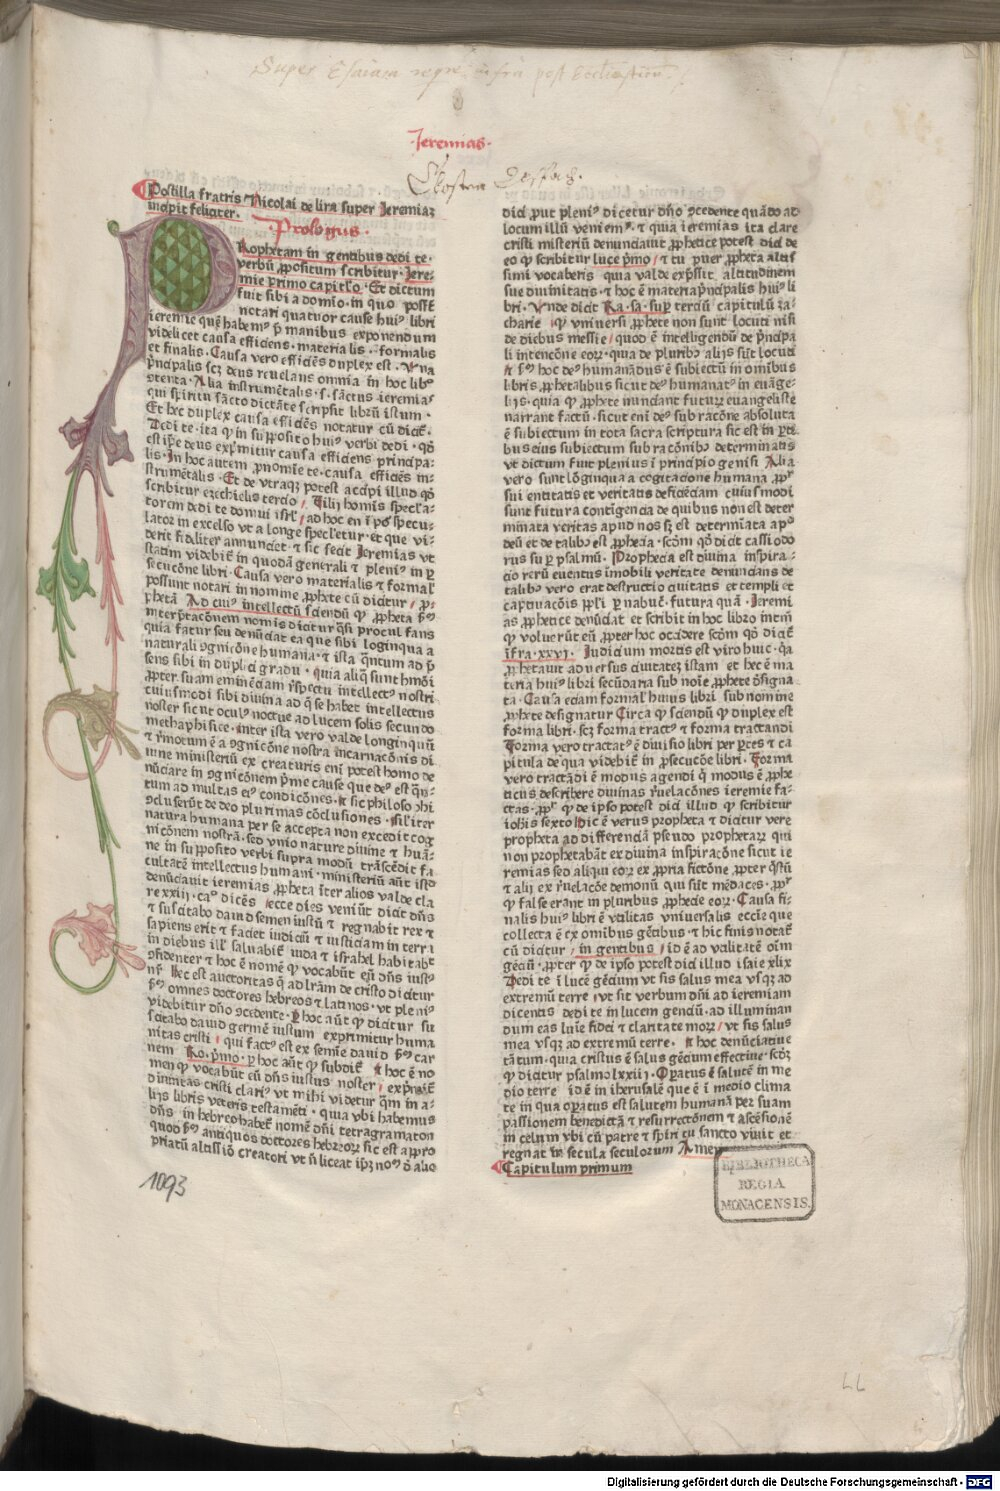 Super Esaiam
·Jeremias·
Postilla fratris Nicolai de lira super Jeremiaȝ
incipit feliciter.
·Prologus·
Prophetam in gentibus dedi te·
verbū ꝓpositum scribitur·Jere-
mie primo capitl'o·Et dictum
fuit sibi a domīo·in quo possūt
notari quatuor cause huiꝰ libri
ieremie quē habemꝰ p̄ manibus exponendum
videlicet causa efficiens·materialis·formalis
et finalis·Causa vero efficiēs duplex est·Vna
p̄ncipalis scȝ deus reuelans omnia in hoc libro
ꝯtenta·Alia instrumētalis·s·sāctus ieremias
qui spiritu sācto dictāte scripsit librū istum·
Et hec duplex causa efficiēs notatur cū dicit̄·
Dedi te·ita ꝙ in supposito huiꝰ verbi dedi·qd̄
est ip̄e deus exprimitur causa efficiens principa-
lis·In hoc autem ꝓnomīe te·causa efficiēs in-
strumētalis·Et de vtraqȝ potest accipi illud qd̄
scribitur ezechielis tercio/Fili homīs specla-
torem dedi te domui isrl'/ad hoc en ī pōs specu-
lator in excelso vt a longe specletur·et que vi-
derit fideliter annunciet·⁊ sic fecit Jeremias vt
statim videbit̄ in quodā generali ⁊ pleniꝰ in ꝑ
secucōne libri·Causa vero materialis ⁊ formal'
possunt notari in nomine ꝓphete cū dicitur/ꝓ-
phetā Ad cuiꝰ intellectū sciendū ꝙ ꝓpheta ẜm
interp̄tacōnem nomīs dicitur q̄si procul fans
quia fatur seu denūciat ea que sibi longinqua a
naturali ꝯgnicōne humana·⁊ ista q̄ntum ad p̄
sens sibi in duplici gradu·quia aliq̄ sunt hmōi
ꝓpter suam eminēciam r̄spectu intellectꝰ nostri
cuiusmodi sibi diuina ad q̄ se habet intellectus
noster sicut oculꝰ noctue ad lucem solis secundo
methaphisice·inter ista vero valde longinquū
⁊ r̄motum ē a ꝯgnicōne nostra incarnacōnis di
uine ministeriū ex creaturis enī potest homo de
nūciare in ꝯgnicōnem p̄me cause que deꝰ est q̄n-
tum ad multas eiꝰ condicōnes·⁊ sic philosophi
ꝯcluserūt de deo plurimas cōclusiones·sil'iter
natura humana per se accepta non excedit cog
nicōnem nostrā·sed vnio nature diuine ⁊ huā-
ne in supposito verbi supra modū trāscēdit fa
cultatē intellectus humani·ministeriū aūt istd
denūciauit ieremias ꝓpheta īter alios valde cla
re xxiij·caº dicēs/ecce dies veniūt dicit dn̄s
⁊ suscitabo dauid semen iustū ⁊ regnabit rex ⁊
sapiens erit ⁊ faciet iudiciū ⁊ iusticiam in terra
in diebus ill' saluabit̄ iuda ⁊ israhel habitabit
ꝯfidenter ⁊ hoc ē nomē ꝙ vocabūt eū dn̄s iustꝰ
nr̄ Hec est auctoritas q̄ ad lr̄am de cristo dicitur
ẜm omnes doctores hebreos ⁊ latinos·vt pleniꝰ
videbitur dn̄o ꝯcedente·ꝑ hoc aūt ꝙ dicitur su
scitabo dauid germē iustum exprimitur huma
nitas cristi/qui factꝰ est ex semīe dauid ẜm car
nem Ro·p̄mo·ꝑ hoc aūt ꝙ subdit̄ ⁊ hoc ē no
men ꝙ vocabūt eū dn̄s iustus noster/exprimit̄
diuinitas cristi clariꝰ vt mihi videtur q̄m in a-
lijs libris veteris testamēti·quia vbi habemus
dn̄s in hebreo habet̄ nomē dn̄i tetragramaton
quod ẜm antiquos doctores hebreorȝ sic est appro
priatū altissīo creatori vt n̄ liceat ip̄ȝ noīari de alio
dici ꝓut pleniꝰ dicetur dn̄o ꝯcedente quādo ad
locum illū veniemꝰ·⁊ quia ieremias ita clare
cristi misteriū denunciauit ꝓphetice potest dici de
eo ꝙ scribitur luce p̄mo/⁊ tu puer ꝓpheta altis
simi vocaberis quia valde exp̄ssit altitudinem
sue diuinitatis·⁊ hoc ē materia p̄ncipalis huiꝰ li
bri·Vnde dicit Ra·sa·suꝑ terciū capitulū za-
charie/ꝙ vniuersi ꝓphete non sunt locuti nisi
de diebus messie/quod ē intelligendū de p̄ncipa
li intencōne eorȝ·quia de pluribꝰ alijs sūt locuti
⁊ ẜm hoc deꝰ humanādus ē subiectū in omibus
libris ꝓphetalibus sicut deꝰ humanatꝰ in euāge-
lijs·quia ꝙ ꝓphete nunciant futurȝ euangeliste
narrant factū·sicut enī deꝰ sub racōne absoluta
ē subiectum in tota sacra scriptura sic est in ꝑti
bus eius subiectum sub racōnibꝰ determinatis
vt dictum fuit plenius ī principio genesi Alia
vero sunt lōginqua a cogitacione humana ꝓpt̄
sui entitatis et veritatis deficiēciam cuiusmodi
sunt futura contigencia de quibus non est deter
minata veritas apud nos sȝ est determīata apd̄
deū et de talibꝰ est ꝓphecia·scd̄m qd̄ dicit cassiodo
rus suꝑ psalmū·Prophecia est diuina inspira-
cio rerū euentus īmobili veritate denuncians de
talibꝰ vero erat destructio ciuitatis et templi et
captiuacōis ppl'i ꝑ nabuc̄·futura quā·Jeremi
as ꝓphetice denūciat et scribit in hoc libro intm̄
ꝙ voluerūt eū ꝓpter hoc occidere scd̄m qd̄ dicit̄
īfra·xxvj·Judicium mortis est viro huic·q̄a
ꝓphetauit aduersus ciuitatez istam et hec ē ma
teria huiꝰ libri secūdaria sub noīe ꝓphete ꝯsigna
ta·Causa eciam formal' huius libri sub nomine
ꝓphete designatur Circa ꝙ sciendū ꝙ duplex est
forma libri·scȝ forma tractꝰ ⁊ forma tractandi
Forma vero tractatꝰ ē diuisio libri per ꝑtes ⁊ ca
pitula de qua videbit̄ in ꝓsecucōe libri·Forma
vero tractādi ē modus agendi q̄ modus ē ꝓphe
ticus describere diuinas r̄uelacōnes ieremie fa-
ctas·ꝓpt̄ ꝙ de ipso potest dici illud ꝙ scribitur
iohīs sexto Hic ē verus propheta ⁊ dicitur vere
propheta ad differenciā pseudo prophetarȝ qui
non prophetabāt ex diuina inspiracōne sicut ie
remias sed aliqui eorȝ ex ꝓpria fictōne ꝓpter q̄stū
⁊ alij ex r̄uelacōe demonū qui sūt mēdaces·ꝓpt̄
ꝙ false erant in pluribus ꝓphecie eorȝ·Causa fi-
nalis huiꝰ libri ē vtilitas vniuersalis ecc̄ie que
collecta ē ex omibus gētibus·⁊ hic finis notat̄
cū dicitur/in gentibus/id ē ad valitatē oīm
gēciū·ꝓpter ꝙ de ipso potest dici illud isaie xlix
Dedi te ī lucē gēcium vt sis salus mea vsqȝ ad
extremū terre/vt sit verbum dn̄i ad ieremiam
dicentis dedi te in lucem genciū·ad illuminan
dum eas luīe fidei ⁊ claritate morȝ/vt sis salus
mea vsqȝ ad extremū terre·⁊ hoc denūciatiue
tātum·quia cristus ē salus gēcium effectiue·scd̄ȝ
ꝙ dicitur psalmo lxxiij·Opatus ē salutē in me
dio terre id ē in iherusalē que ē ī medio clima
te in qua oꝑatus est salutem humanā per suam
passionem benedictā ⁊ resurrectōnem ⁊ ascēsionē
in celum vbi cū patre ⁊ spiritu sancto viuit et
regnat in secula seculorum Amen
Capitulum primum
1093
BIBLIOTHECA
REGIA
MONACENSIS.
LL
Digitalisierung gefördert durch die Deutsche Forschungsgemeinschaft - DFG